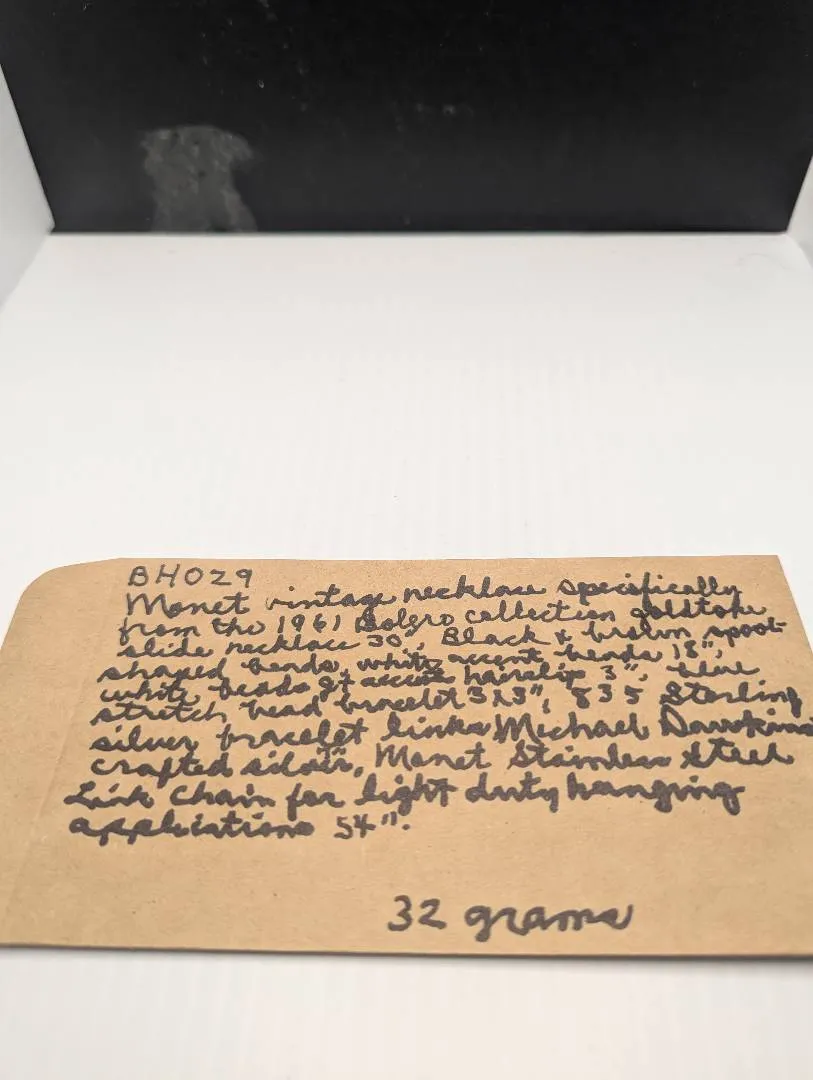 BH029
Monet vintage necklace specifically
from the 1961 Bolero collection goldtone
slide necklace 30", Black & brown spool
shaped beads, white accent beads 18",
white beads accent hairclip 3", blue
stretch bead bracelet 3x3", 835 Sterling
silver bracelet links Michael Dawkins
crafted silver, Monet Stainless Steel
Link Chain for light duty hanging
applications 54".
32 grams